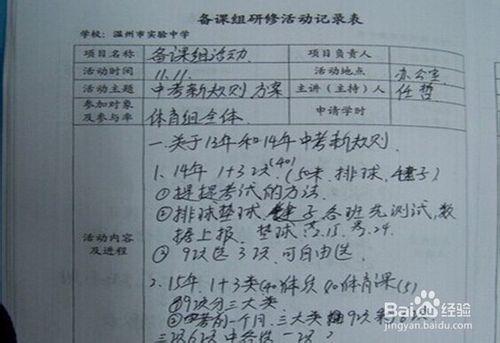 备课组研修活动记录表
学校：温州市实验中学
项目名称 备课组活动 项目负责人
活动时间 11.11. 活动地点 办公室
活动主题 中考新规则方案 主讲（主持）人 任哲
参加对象及参与率 体育组全体 申请学时
活动内容及进程
一.关于13年和14年中考新规则.
1. 14年 1+3 2次(40) (50米.排球.毽子)
①提提考试的方法.
②排球垫球.毽子各班先测试,数
据上报. 垫球 15. 24.
③ 9次选3次.可自由选.
2. 15年. 1+3类(40 体育课(5)
①9次分三大类.
②中考前一个月.三大类 9次
三次6次中各选一次
Baidu经验
jingyan.baidu.com